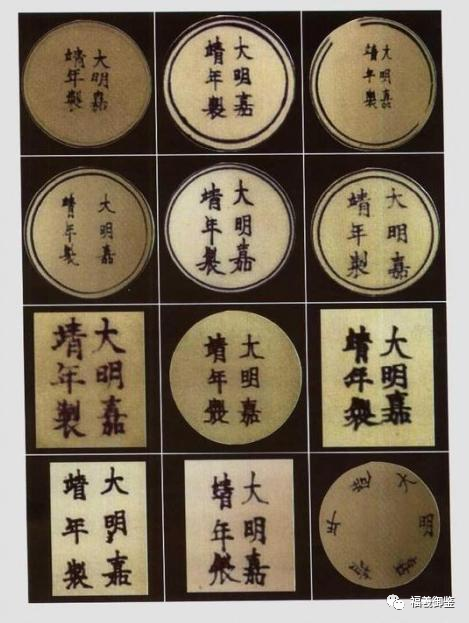 大明嘉
靖年製
大明嘉
靖年製
大明嘉
靖年製
大明嘉
靖年製
大明嘉
靖年製
大明嘉
靖年製
大明嘉
靖年製
大明嘉
靖年製
大明嘉
靖年製
大明嘉
靖年製
大明嘉
靖年製
大明嘉靖年製
福羲御鉴